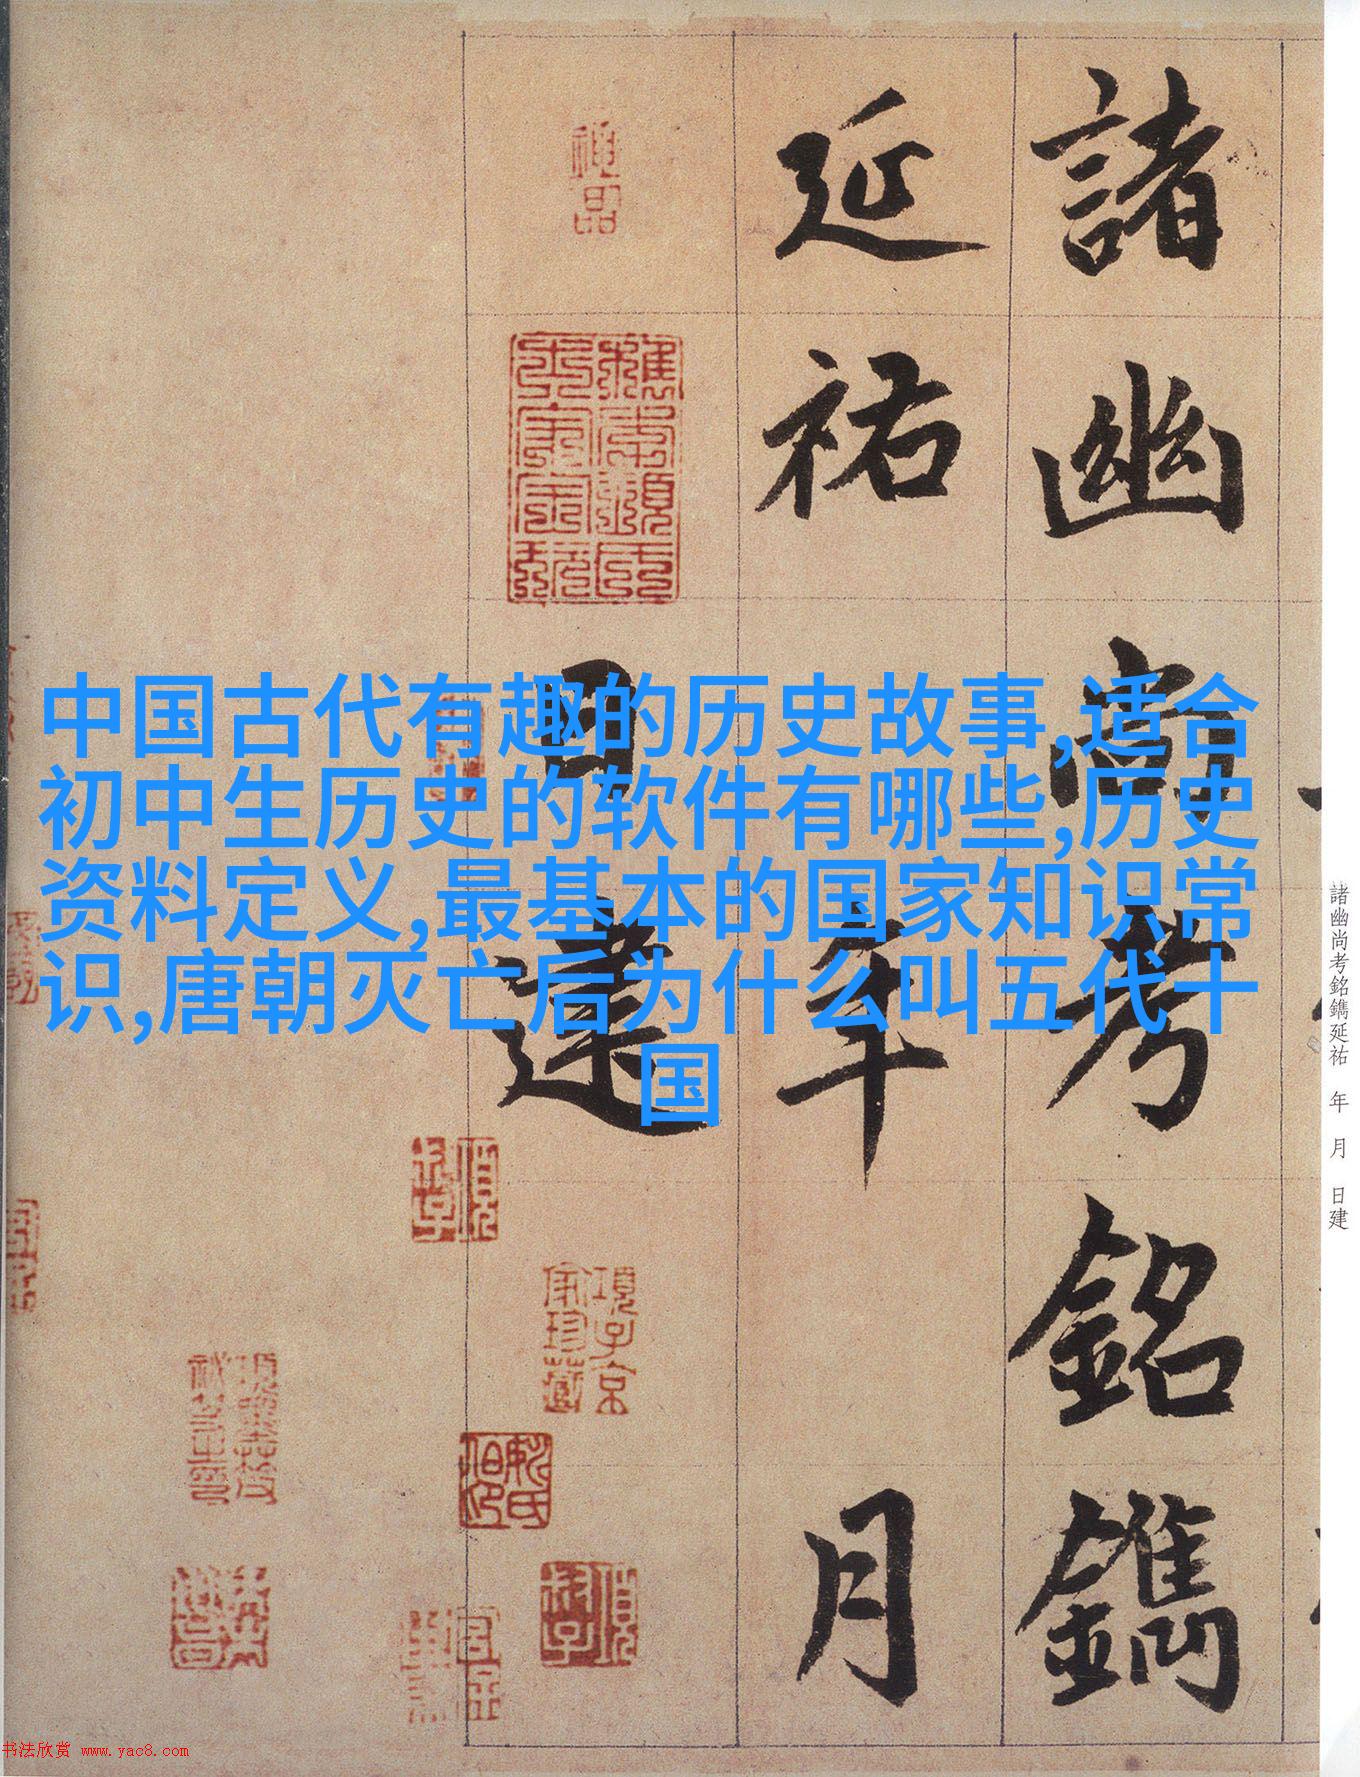 中国古代有趣的历史故事,适合
初中生历史的软件有哪些,历史
资料定义,最基本的国家知识常
识,唐朝灭亡后为什么叫五代十
国
諸幽尚考銘鐫
延祐年月
日建
諸幽尚考銘鐫延祐 年 月 日建
神品
項子京
家珍藏
书法欣赏 www.yac8.com